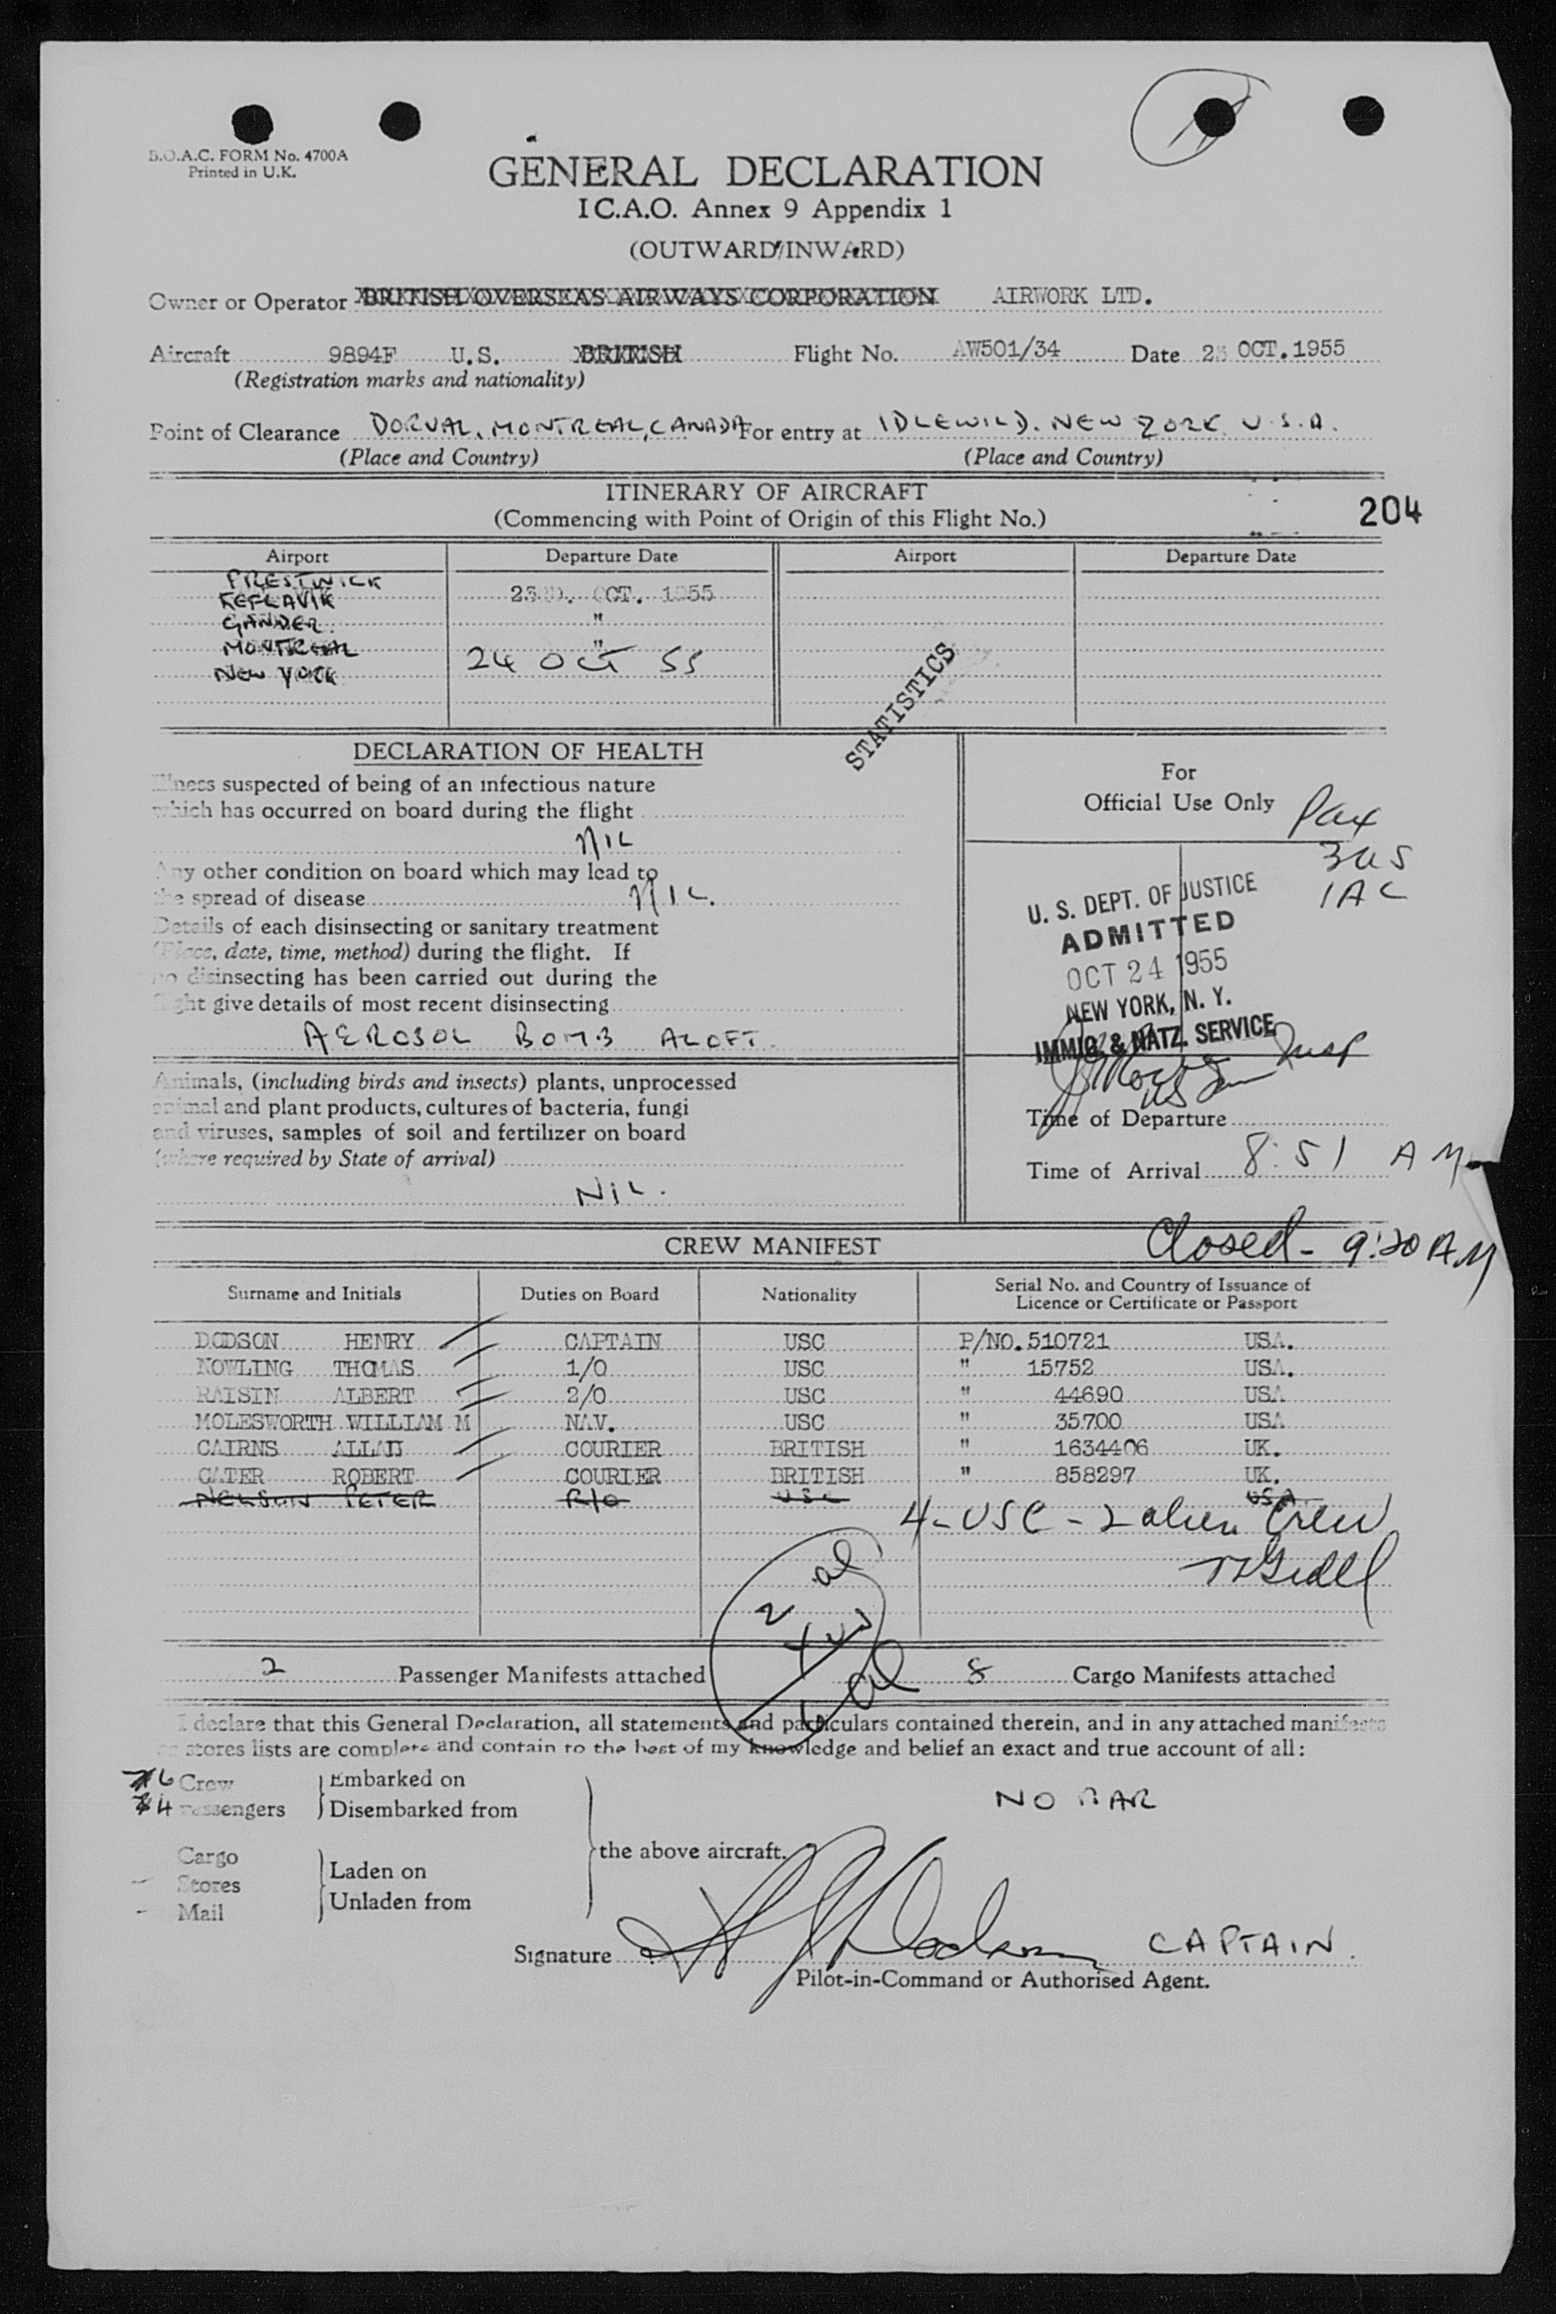 B.O.A.C. FORM No. 4700A
Printed in U.K.
GENERAL DECLARATION
I C.A.O. Annex 9 Appendix 1
(OUTWARD/INWARD)
Owner or Operator BRITISH OVERSEAS AIRWAYS CORPORATION AIRWORK LTD.
Aircraft 9894F U.S. BRITISH Flight No. AW501/34 Date 23 OCT. 1955
(Registration marks and nationality)
Point of Clearance DORVAL, MONTREAL, CANADA For entry at IDLEWILD. NEW YORK U.S.A.
(Place and Country) (Place and Country)
ITINERARY OF AIRCRAFT
(Commencing with Point of Origin of this Flight No.) 204
Airport Departure Date Airport Departure Date
PRESTWICK
KEFLAVIK 23RD. OCT. 1955
GANDER. "
MONTREAL "
NEW YORK 24 OCT 55
STATISTICS
DECLARATION OF HEALTH
Illness suspected of being of an infectious nature
which has occurred on board during the flight
NIL
Any other condition on board which may lead to
the spread of disease NIL.
Details of each disinsecting or sanitary treatment
(Place, date, time, method) during the flight. If
no disinsecting has been carried out during the
flight give details of most recent disinsecting
AEROSOL BOMB ALOFT.
Animals, (including birds and insects) plants, unprocessed
animal and plant products, cultures of bacteria, fungi
and viruses, samples of soil and fertilizer on board
(where required by State of arrival)
NIL.
For
Official Use Only Pax
3 US
1 AL
U. S. DEPT. OF JUSTICE
ADMITTED
OCT 24 1955
NEW YORK, N. Y.
IMMIG. & NATZ. SERVICE
Insp
Time of Departure
Time of Arrival 8:51 AM
CREW MANIFEST Closed - 9:20 AM
Surname and Initials Duties on Board Nationality Serial No. and Country of Issuance of
Licence or Certificate or Passport
DODSON HENRY CAPTAIN USC P/NO. 510721 USA.
NOWLING THOMAS 1/O USC " 15752 USA.
RAISIN ALBERT 2/O USC " 44690 USA
MOLESWORTH WILLIAM M NAV. USC " 35700 USA
CAIRNS ALLAN COURIER BRITISH " 1634406 UK.
CATER ROBERT COURIER BRITISH " 858297 UK.
NELSON PETER R/O USC USA
4 - USC - 2 alien Crew
2 al
4 us
2 Passenger Manifests attached 8 Cargo Manifests attached
I declare that this General Declaration, all statements and particulars contained therein, and in any attached manifests
or stores lists are complete and contain to the best of my knowledge and belief an exact and true account of all:
6 Crew Embarked on
4 Passengers Disembarked from
NO BAR
the above aircraft.
Cargo
Stores Laden on
Mail Unladen from
Signature H J Dodson CAPTAIN.
Pilot-in-Command or Authorised Agent.